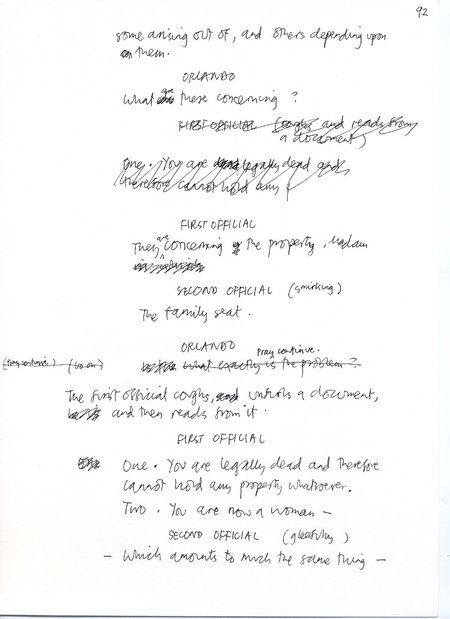 92
some arising out of, and others depending upon
them.
ORLANDO
What are these concerning ?
FIRST OFFICIAL (coughs and reads from
a document)
One. You are legally dead and
therefore cannot hold any
FIRST OFFICIAL
They are concerning the property, Madam
SECOND OFFICIAL (smirking)
The family seat.
ORLANDO
Pray continue.
(Pray continue) (Go on) What exactly is the problem?
The first official coughs, unrolls a document,
and then reads from it.
FIRST OFFICIAL
One. You are legally dead and therefore
cannot hold any property whatsoever.
Two. You are now a woman —
SECOND OFFICIAL (gleefully)
— Which amounts to much the same thing —